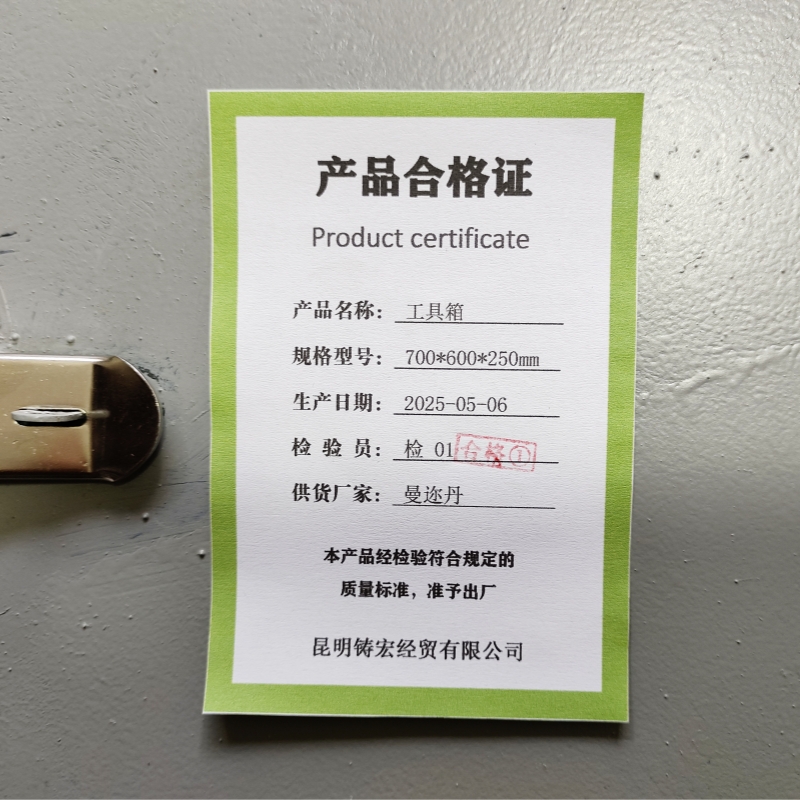 产品合格证
Product certificate
产品名称：工具箱
规格型号：700*600*250mm
生产日期：2025-05-06
检 验 员：检 01 合格①
供货厂家：曼迩丹
本产品经检验符合规定的
质量标准，准予出厂
昆明铸宏经贸有限公司